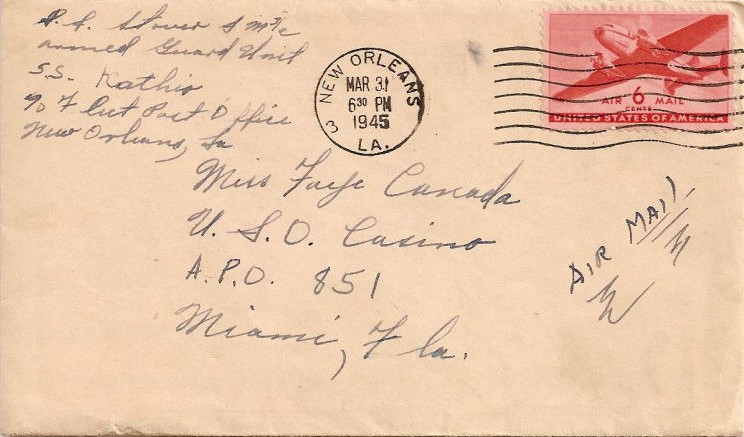 R. L. Stover S M 3/c
Armed Guard Unit
S.S. Kathio
c/o Fleet Post Office
New Orleans, La
NEW ORLEANS
3
MAR 31
6 30 PM
1945
LA.
AIR 6 MAIL
CENTS
UNITED STATES OF AMERICA
Miss Faye Canada
U.S.O. Casino
A.P.O. 851
Miami, Fla.
AIR MAIL